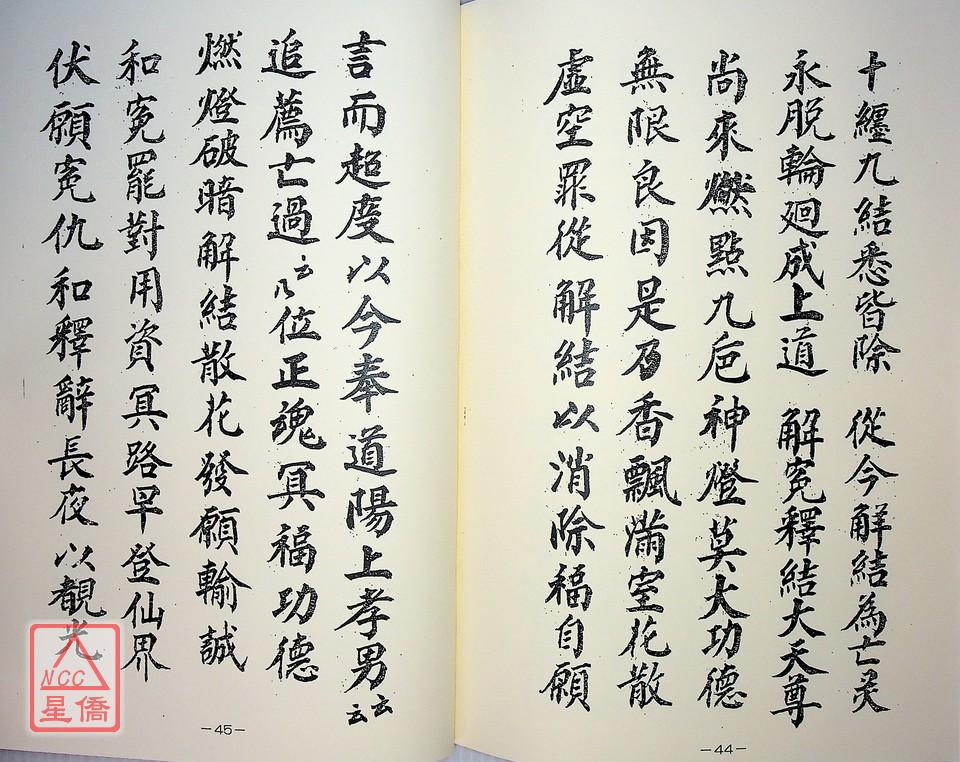 十纏九結悉皆除 從今解結為亡灵
永脫輪廻成上道 解寃釋結大天尊
尚來燃點九卮神燈莫大功德
無限良因是乃香飄滿室花散
虛空罪從解結以消除福自願
-44-
言而超度以今奉道陽上孝男云云
追薦亡過云乃位正魂冥福功德
燃燈破暗解結散花發願輸誠
和寃罷對用資冥路早登仙界
伏願寃仇和釋辭長夜以覩光
-45-
NCC
星僑